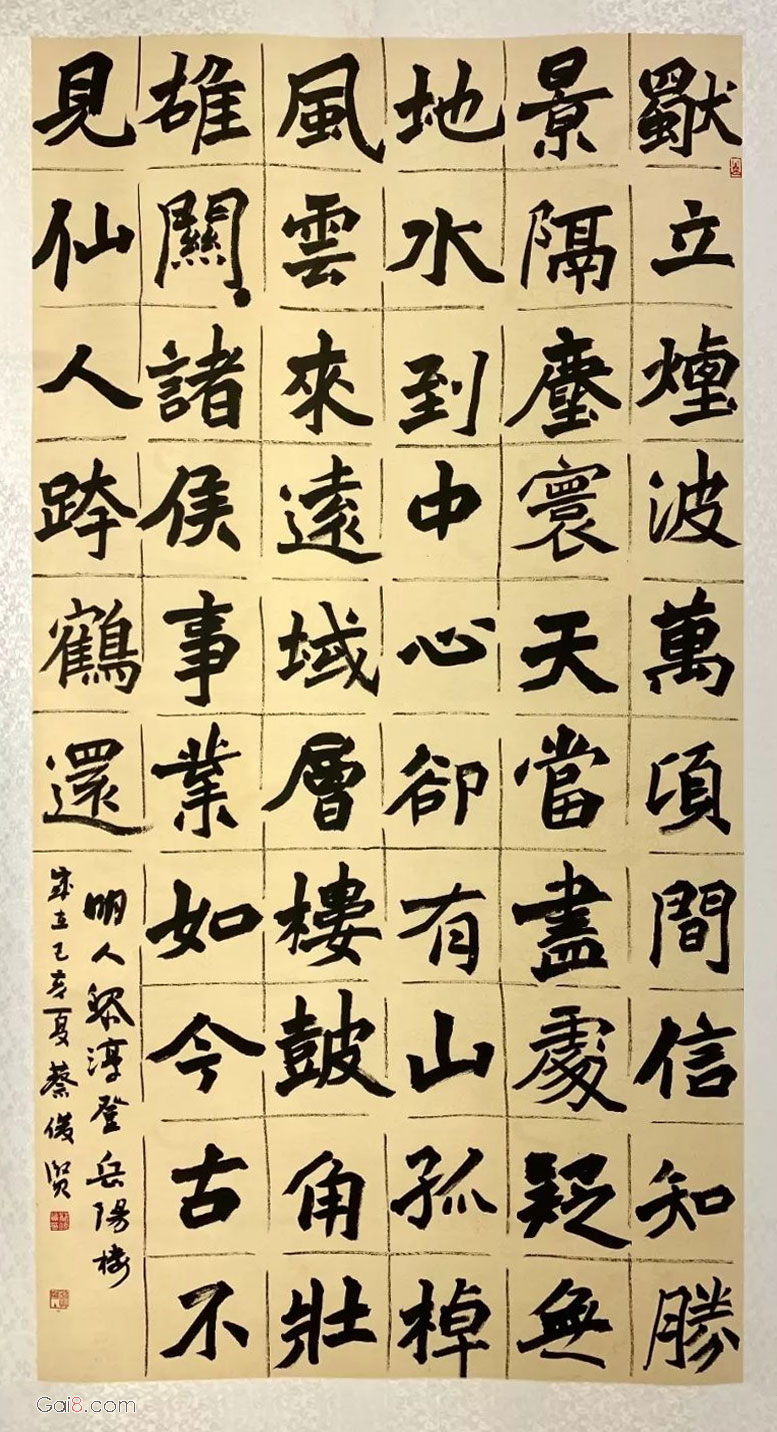 獨立煙波萬頃間信知勝
景隔塵寰天當盡處疑無
地水到中心卻有山孤棹
風雲來遠域層樓皷角壯
雄關諸侯事業如今古不
見仙人跨鶴還
明人黎淳登岳陽樓
歲在己亥夏蔡俊賢
Gai8.com